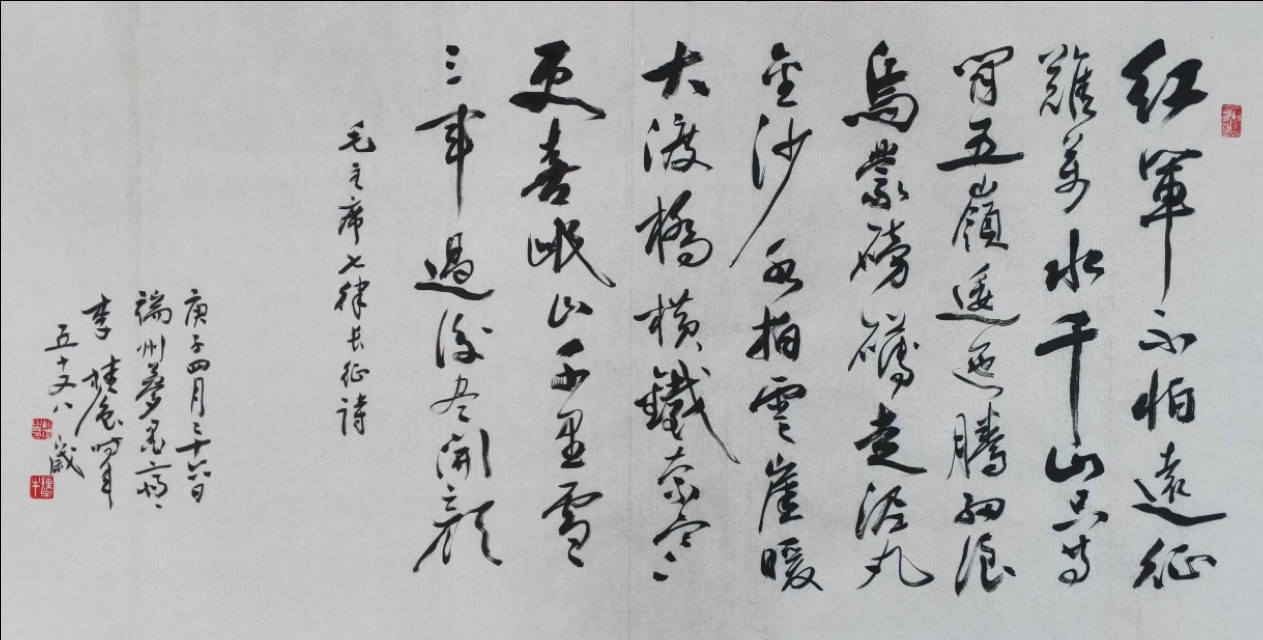 紅軍不怕遠征
難萬水千山只等
閒五嶺逶迤騰細浪
烏蒙磅礴走泥丸
金沙水拍雲崖暖
大渡橋橫鐵索寒
更喜岷山千里雪
三軍過後盡開顏
毛主席七律長征詩
庚子四月三十六日
端州夢
李桂 時年
五十又八歲